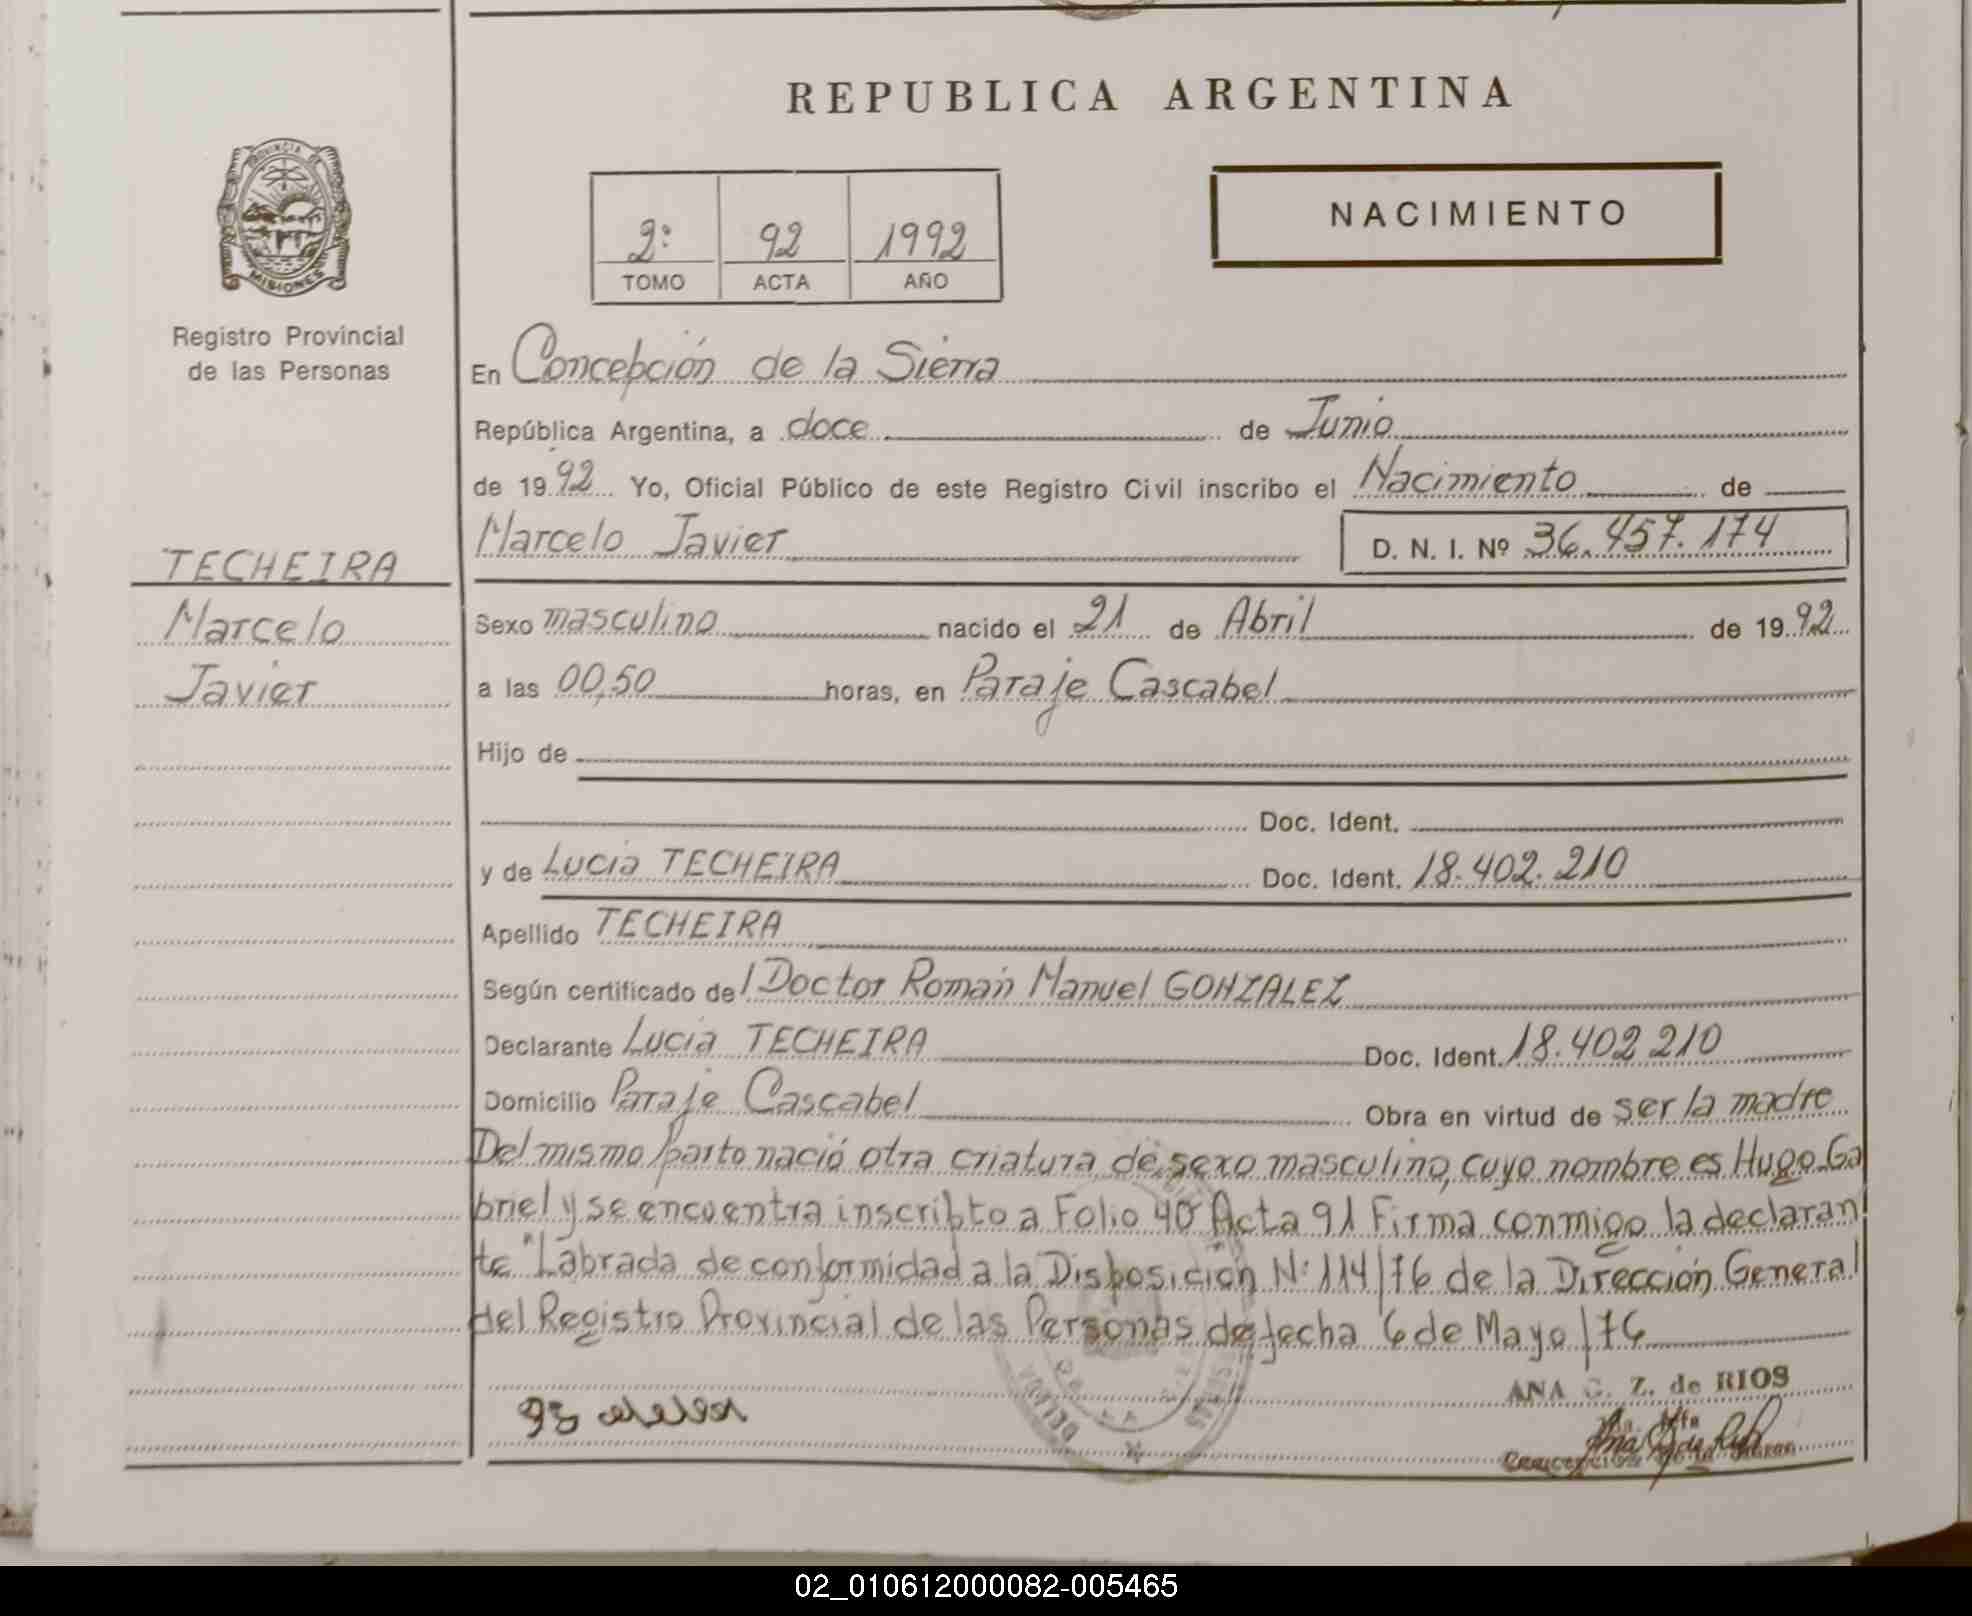 REPUBLICA ARGENTINA
PROVINCIA DE MISIONES
Registro Provincial
de las Personas
2º 92 1992
TOMO ACTA AÑO
NACIMIENTO
En Concepción de la Sierra
República Argentina, a doce de Junio
de 1992 Yo, Oficial Público de este Registro Civil inscribo el Nacimiento de
Marcelo Javier D. N. I. Nº 36.457.174
TECHEIRA
Marcelo
Javier
Sexo masculino nacido el 21 de Abril de 1992
a las 00,50 horas, en Paraje Cascabel
Hijo de
Doc. Ident.
y de Lucia TECHEIRA Doc. Ident. 18.402.210
Apellido TECHEIRA
Según certificado del Doctor Román Manuel GONZALEZ
Declarante Lucia TECHEIRA Doc. Ident. 18.402.210
Domicilio Paraje Cascabel Obra en virtud de ser la madre
Del mismo parto nació otra criatura, de sexo masculino, cuyo nombre es Hugo Ga
briel y se encuentra inscripto a Folio 40 Acta 91 Firma conmigo la declaran
te "Labrada de conformidad a la Disposición Nº 114/76 de la Dirección General
del Registro Provincial de las Personas de fecha 6 de Mayo/76
ANA C. Z. de RIOS
Concepción de la Sierra
02_010612000082-005465